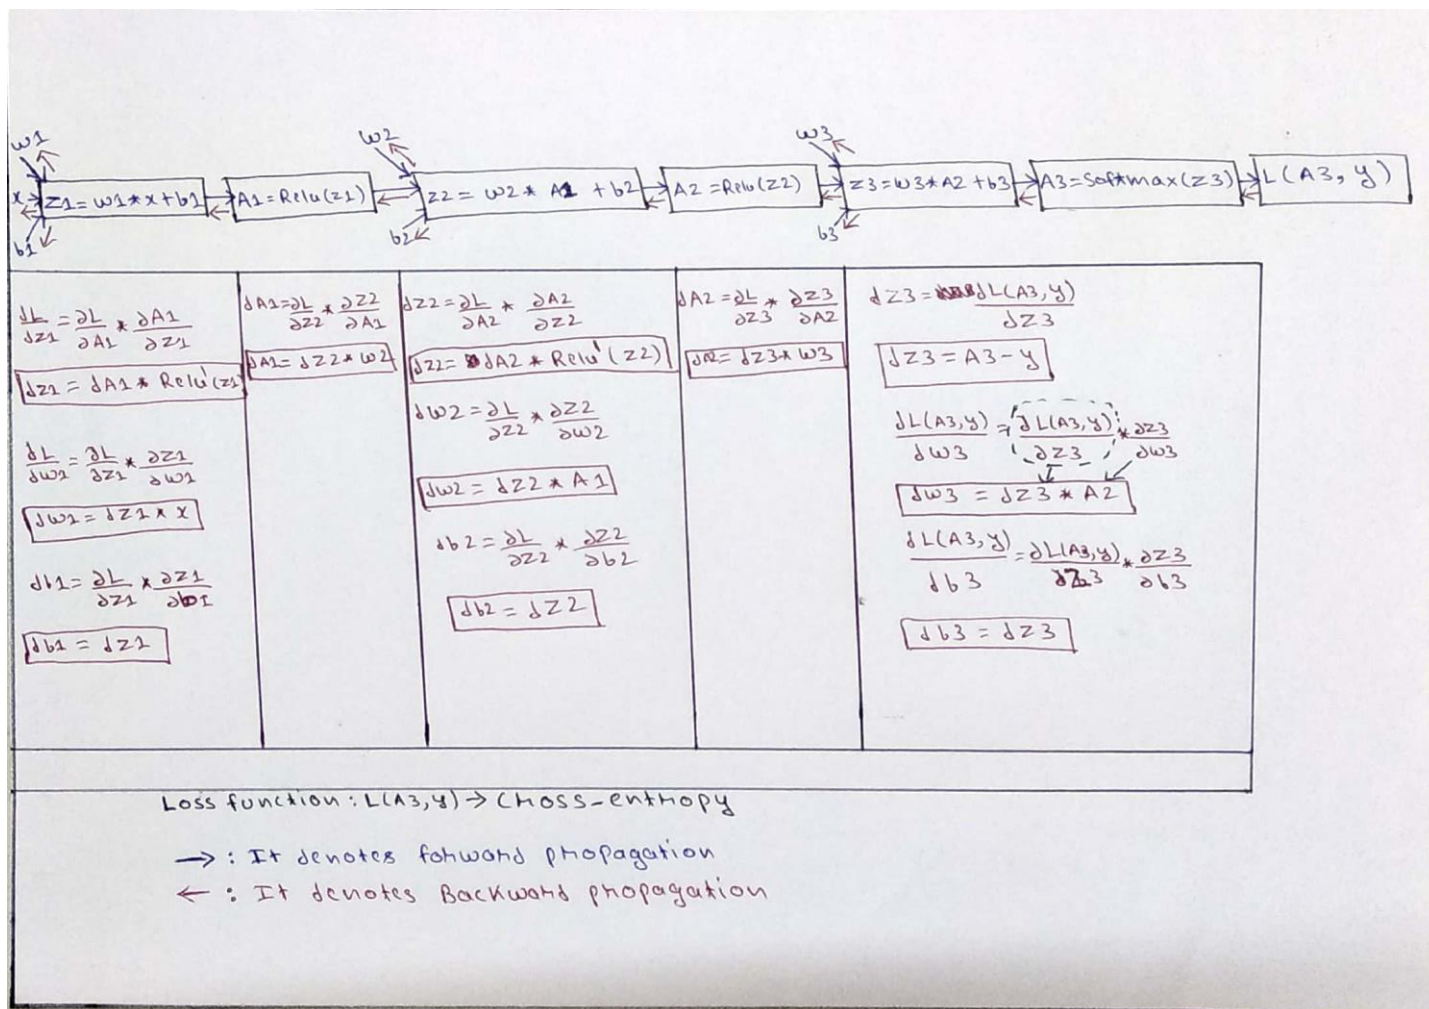 w1 w2 w3
x z1 = w1*x+b1 A1=Relu(z1) z2 = w2* A1 + b2 A2 =Relu(z2) z3=w3*A2+b3 A3=Softmax(z3) L(A3, y)
b1 b2 b3
dL/dz1 = ∂L/∂A1 * ∂A1/∂z1
dz1 = dA1 * Relu'(z1)
dL/dw1 = ∂L/∂z1 * ∂z1/∂w1
dw1 = dz1 * x
db1 = ∂L/∂z1 * ∂z1/∂b1
db1 = dz1
dA1 = ∂L/∂z2 * ∂z2/∂A1
dA1 = dz2 * w2
dz2 = ∂L/∂A2 * ∂A2/∂z2
dz2 = dA2 * Relu'(z2)
dw2 = ∂L/∂z2 * ∂z2/∂w2
dw2 = dz2 * A1
db2 = ∂L/∂z2 * ∂z2/∂b2
db2 = dz2
dA2 = ∂L/∂z3 * ∂z3/∂A2
dA2 = dz3 * w3
dz3 = dL(A3,y)/dz3
dz3 = A3-y
dL(A3,y)/dw3 = dL(A3,y)/∂z3 * ∂z3/∂w3
dw3 = dz3 * A2
dL(A3,y)/db3 = ∂L(A3,y)/∂z3 * ∂z3/∂b3
db3 = dz3
Loss function : L(A3,y) → Cross-entropy
→ : It denotes forward propagation
← : It denotes Backward propagation